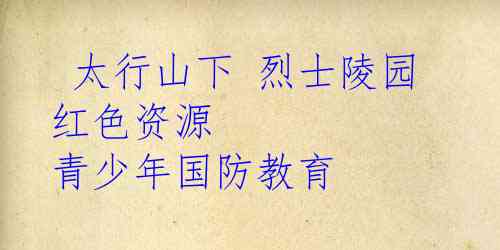 太行山下 烈士陵园
红色资源
青少年国防教育